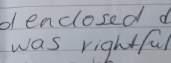 enclosed
was rightful